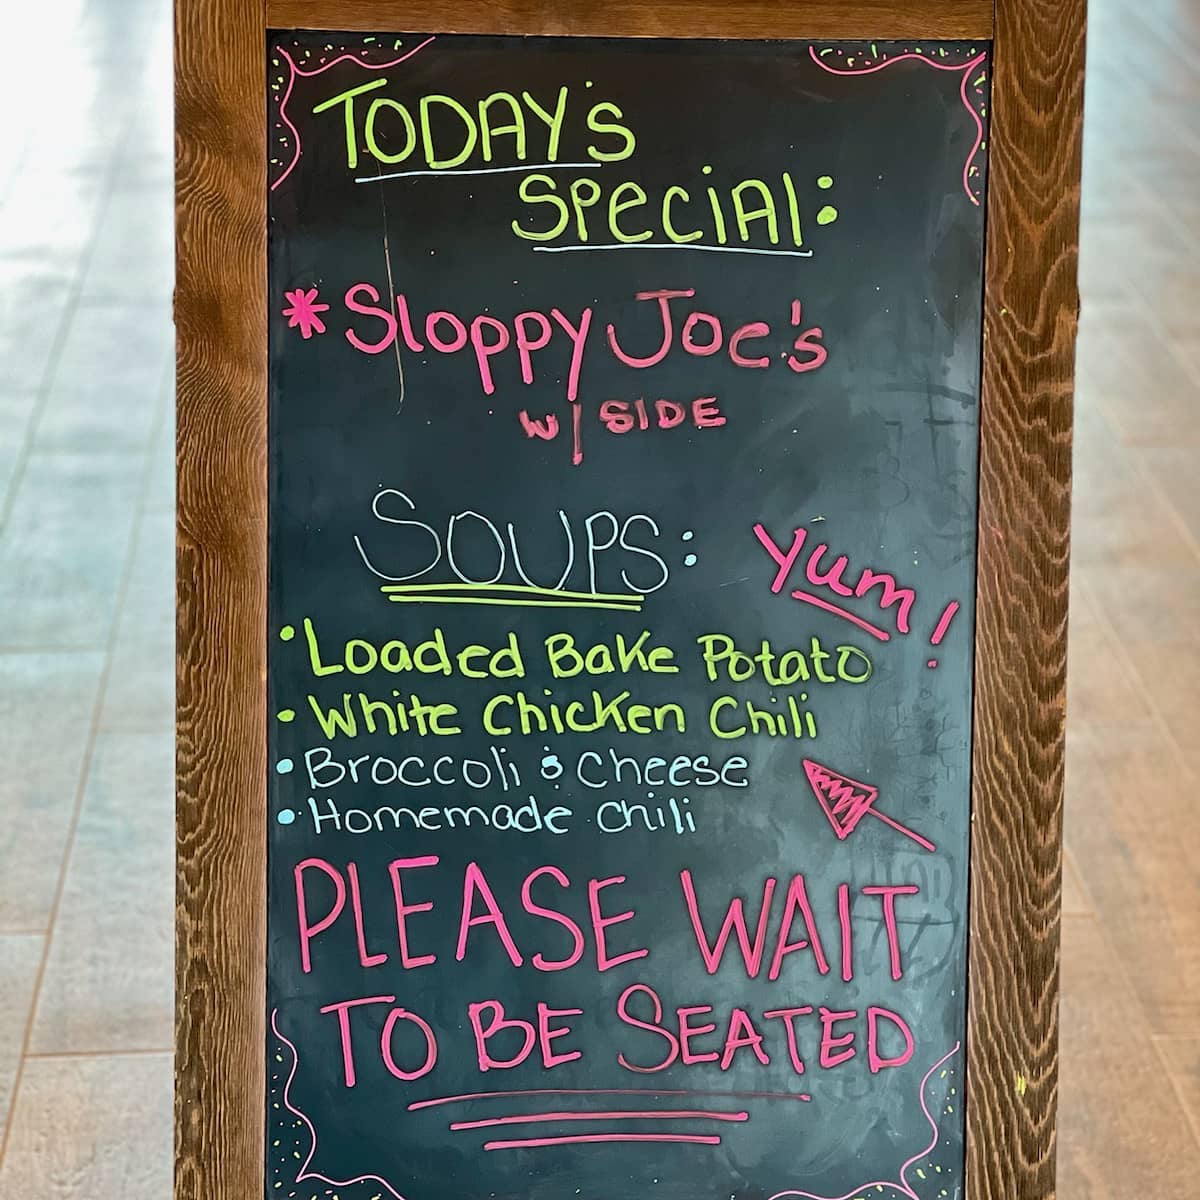 TODAY'S
SPECIAL:
* Sloppy Joe's
w/ SIDE
SOUPS:
Yum!
• Loaded Bake Potato
• White Chicken Chili
• Broccoli & Cheese
• Homemade Chili
PLEASE WAIT
TO BE SEATED